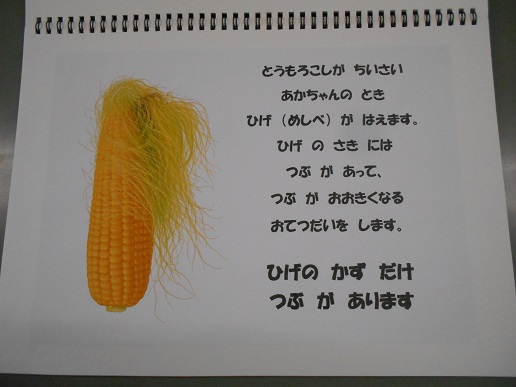 とうもろこしが ちいさい
あかちゃんの とき
ひげ（めしべ）が はえます。
ひげ の さき には
つぶ が あって、
つぶ が おおきくなる
おてつだいを します。
ひげの かず だけ
つぶ が あります